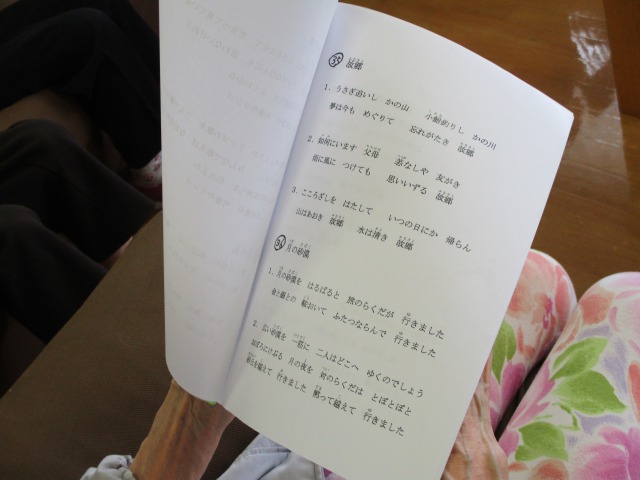 35 故郷
1. うさぎ追いし かの山 小鮒釣りし かの川
夢は今も めぐりて 忘れがたき 故郷
2. 如何にいます 父母 恙なしや 友がき
雨に風に つけても 思いいずる 故郷
3. こころざしを はたして いつの日にか 帰らん
山はあおき 故郷 水は清き 故郷
月の砂漠
1. 月の砂漠を はるばると 旅のらくだが 行きました
金と銀との 鞍おいて ふたつならんで 行きました
2. 広い砂漠を 一筋に 二人はどこへ ゆくのでしょう
おぼろにけぶる 月の夜を 対のらくだは とぼとぼと
砂丘を越えて 行きました 黙って越えて 行きました